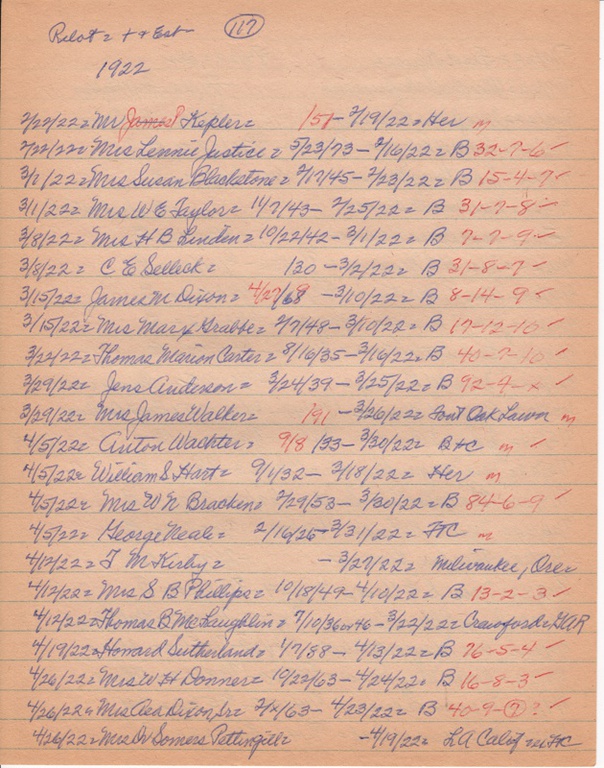 Pilot = + + Est (117)
1922
2/22/22 = Mr James P Kepler = /51 - 2/19/22 = Her m
2/22/22 = Mrs Lennie Justice = 5/23/73 - 2/16/22 = B 32-7-6 ✓
3/1/22 = Mrs Susan Blackstone = 2/17/45 - 2/23/22 = B 15-4-7 ✓
3/1/22 = Mrs W E Taylor = 11/7/43 - 2/25/22 = B 31-7-8 ✓
3/8/22 = Mrs H B Linden = 10/22/42 - 3/1/22 = B 7-7-9 ✓
3/8/22 = C E Selleck = /20 - 3/2/22 = B 31-8-7 ✓
3/15/22 = James M Dixon = 4/27/68 9 - 3/10/22 = B 8-14-9 ✓
3/15/22 = Mrs Mary Grabbe = 2/7/48 - 3/10/22 = B 17-12-10 ✓
3/22/22 = Thomas Marion Carter = 8/16/35 - 3/16/22 = B 40-7-10 ✓
3/29/22 = Jens Anderson = 3/24/39 - 3/25/22 = B 92-9-x ✓
3/29/22 = Mrs James Walker = /91 - 3/26/22 = Font Oak Lawn m
4/5/22 = Anton Wachter = 9/8/33 - 3/30/22 = B+C m ✓
4/5/22 = William S Hart = 9/1/32 - 3/18/22 = Her m
4/5/22 = Mrs W N Bracken = 2/29/53 - 3/30/22 = B 84-6-9 ✓
4/5/22 = George Neal = 2/16/25 - 3/31/22 = FC m
4/12/22 = T M Kirby = - 3/27/22 = Milwaukee, Ore =
4/12/22 = Mrs S B Phillips = 10/18/49 - 4/10/22 = B 13-2-3 ✓
4/12/22 = Thomas B McLaughlin = 7/10/36 or 46 - 3/22/22 = Crawford = GAR
4/19/22 = Howard Sutherland = 1/7/88 - 4/13/22 = B 76-5-4 ✓
4/26/22 = Mrs W H Donner = 10/22/63 - 4/24/22 = B 16-8-3 ✓
4/26/22 = Mrs Asa Dixon Sr = 2/x/63 - 4/23/22 = B 40-9-(7)? ✓
4/26/22 = Mrs Dr Somers Pettingill = - 4/19/22 = LA Calif FC